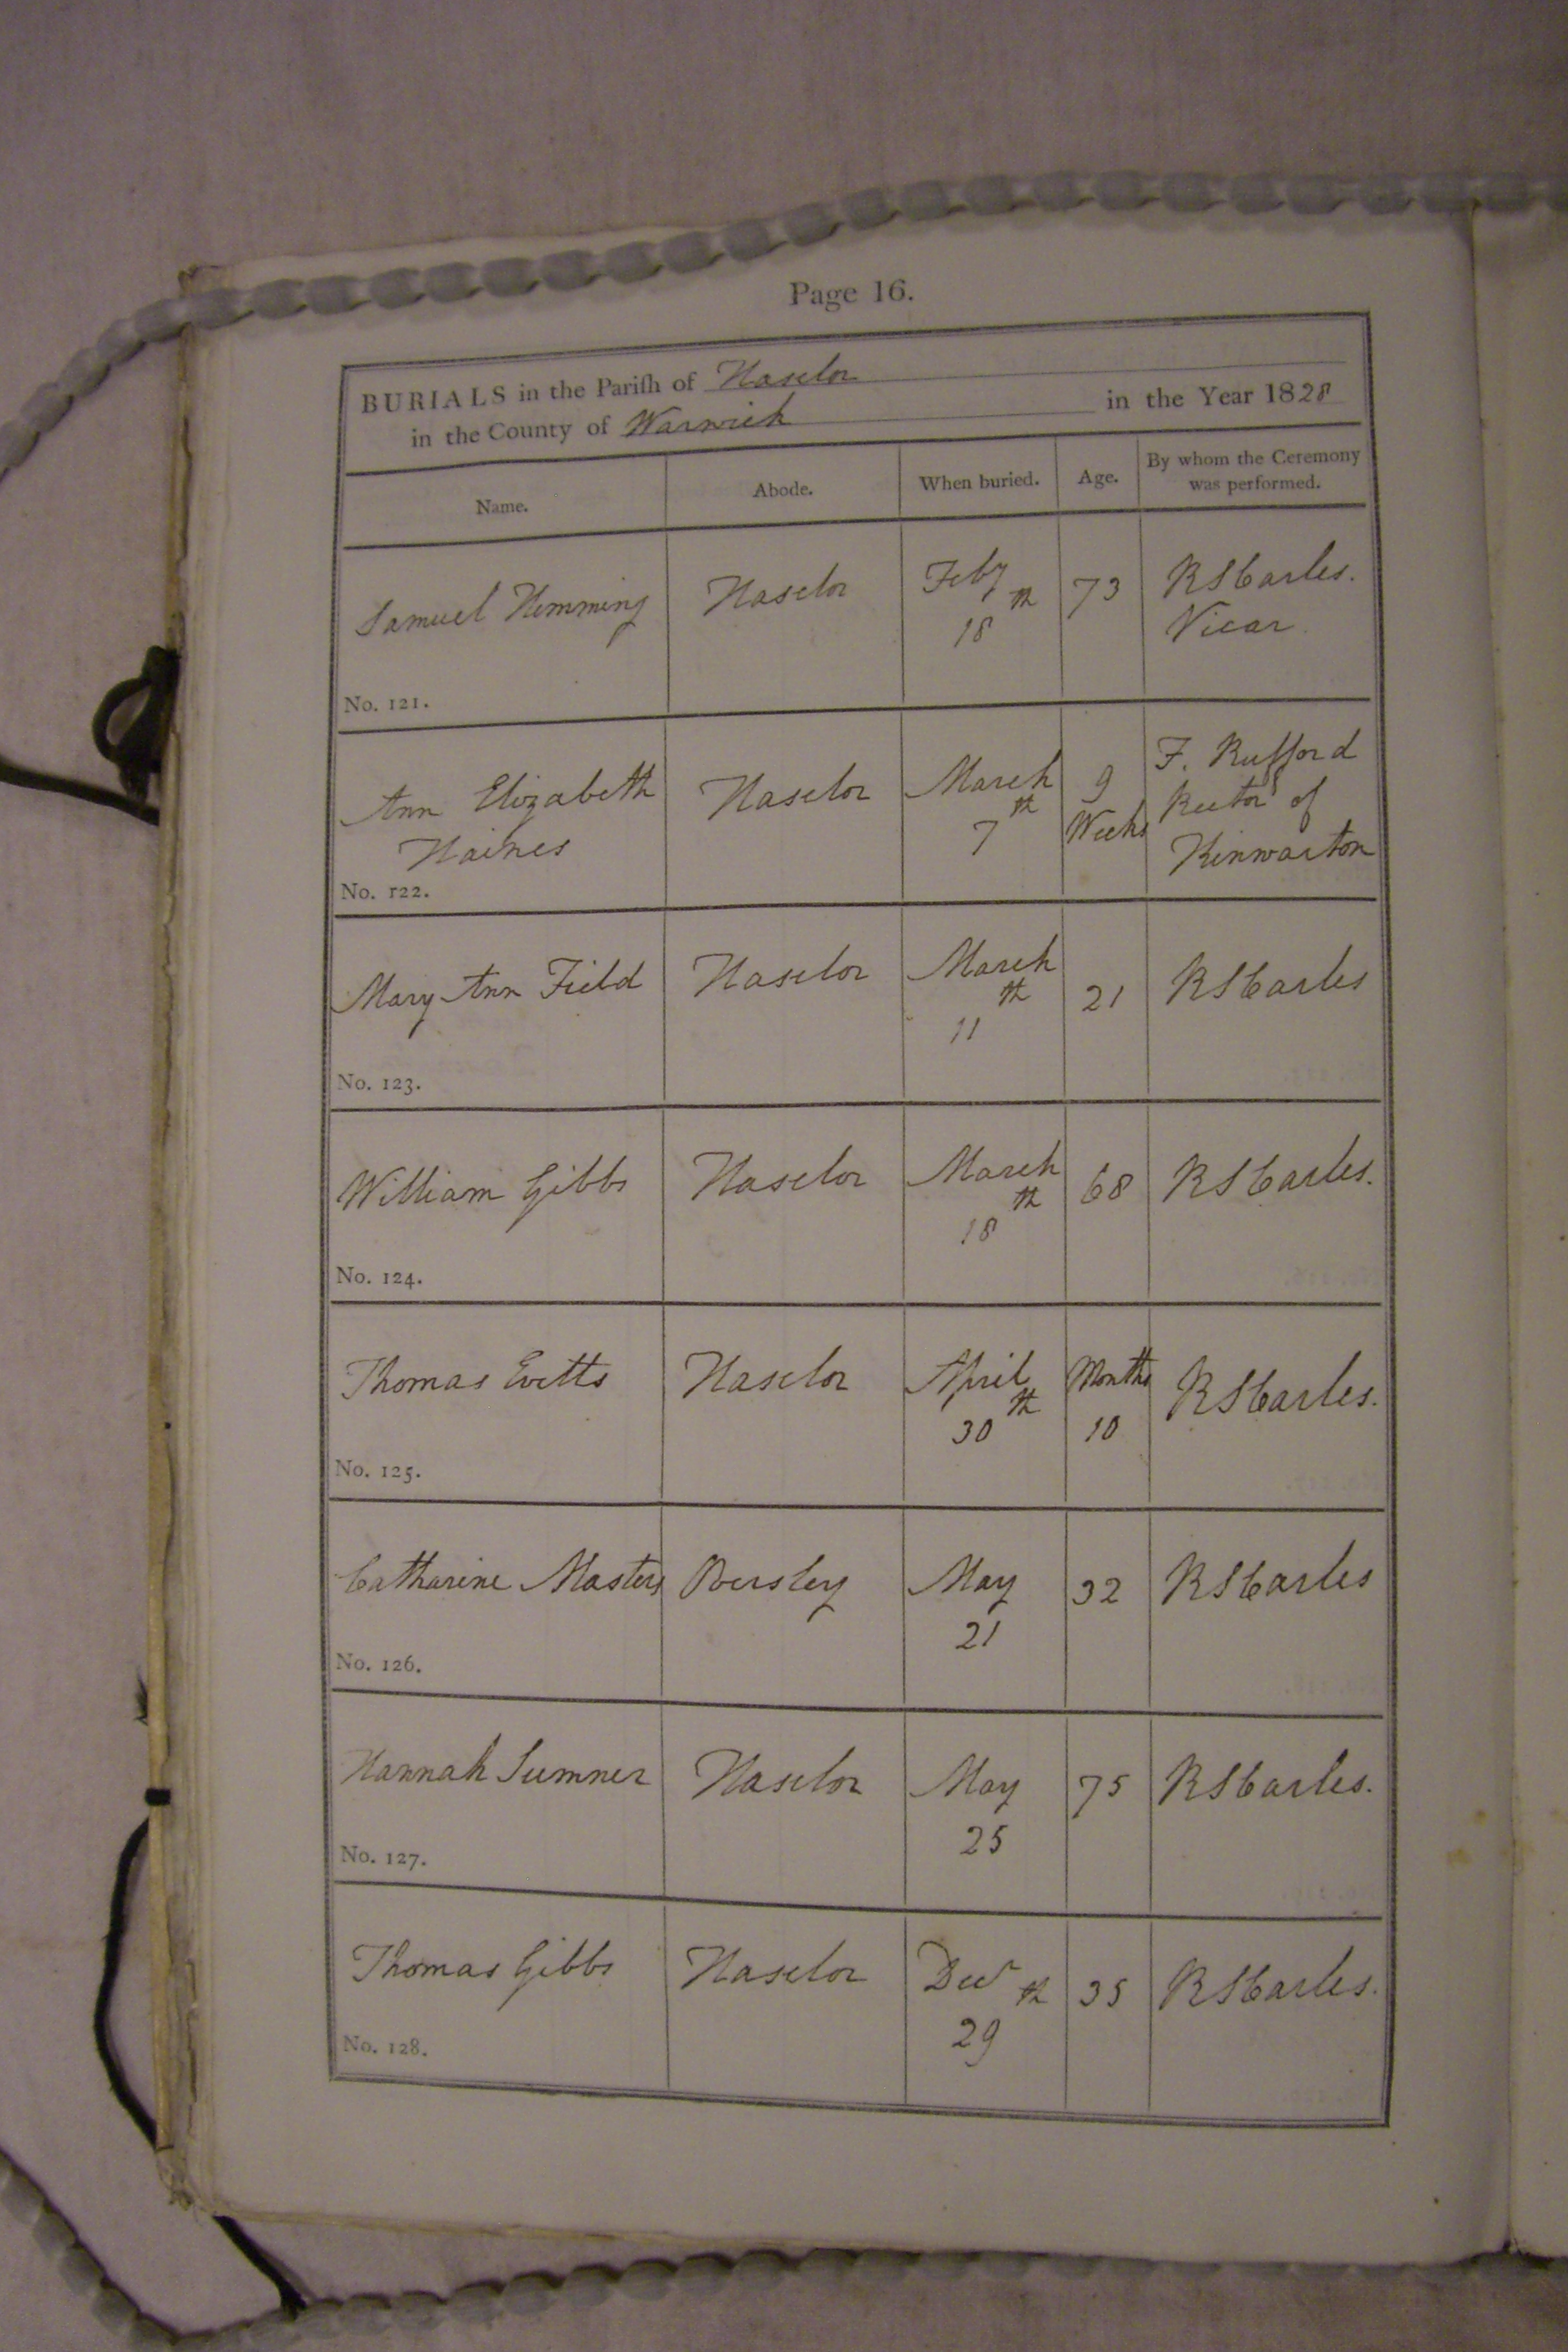 Page 16.
BURIALS in the Parish of Haselor
in the County of Warwick in the Year 1828
Name. Abode. When buried. Age. By whom the Ceremony was performed.
Samuel Hemming Haselor Feby 18th 73 R S Carles. Vicar
No. 121.
Ann Elizabeth Haines Haselor March 7th 9 Weeks F. Rufford Rector of Kinwarton
No. 122.
Mary Ann Field Haselor March 11th 21 R S Carles
No. 123.
William Gibbs Haselor March 18th 68 R S Carles.
No. 124.
Thomas Evetts Haselor April 30th Months 10 R S Carles.
No. 125.
Catharine Masters May 21 32 R S Carles
No. 126.
Hannah Sumner Haselor May 25 75 R S Carles.
No. 127.
Thomas Gibbs Haselor Decr 29th 35 R S Carles.
No. 128.